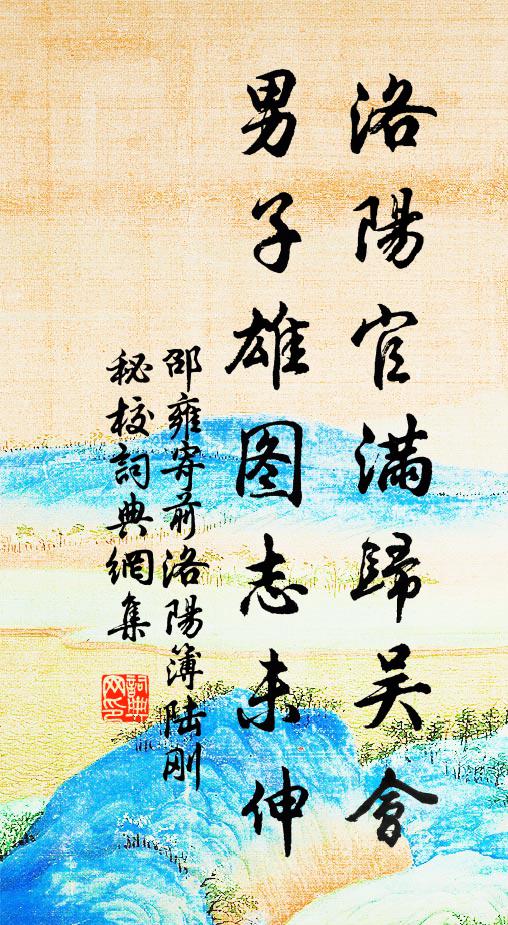 洛陽官滿歸吴會
男子雄图志未伸
邵雍寄前洛陽簿陸刚
秘校詞典網集
詞典
网印